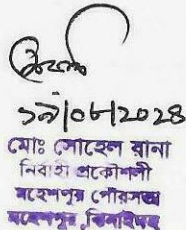 ১৯/০৮/২০২৪
মোঃ সোহেল রানা
নির্বাহী প্রকৌশলী
মহেশপুর পৌরসভা
মহেশপুর, ঝিনাইদহ